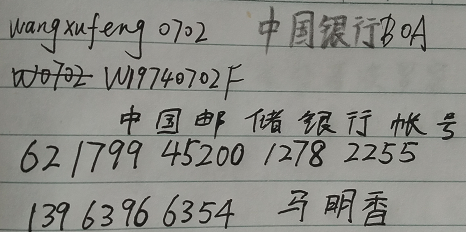 wangxufeng 0702 中国银行BOA
W0702 W19740702F
中国邮储银行帐号
621799 45200 1278 2255
139 6396 6354 马明香